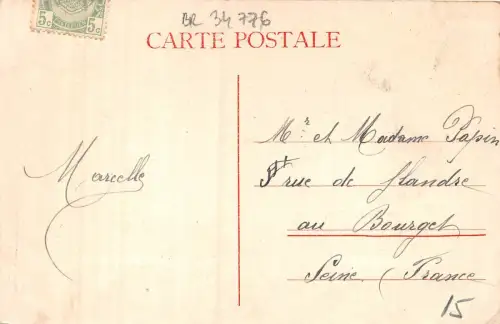 BR 34 776
5c 5c
CARTE POSTALE
Marcelle
Mr et Madame Papin
rue de Flandre
au Bourget
Seine, France
15